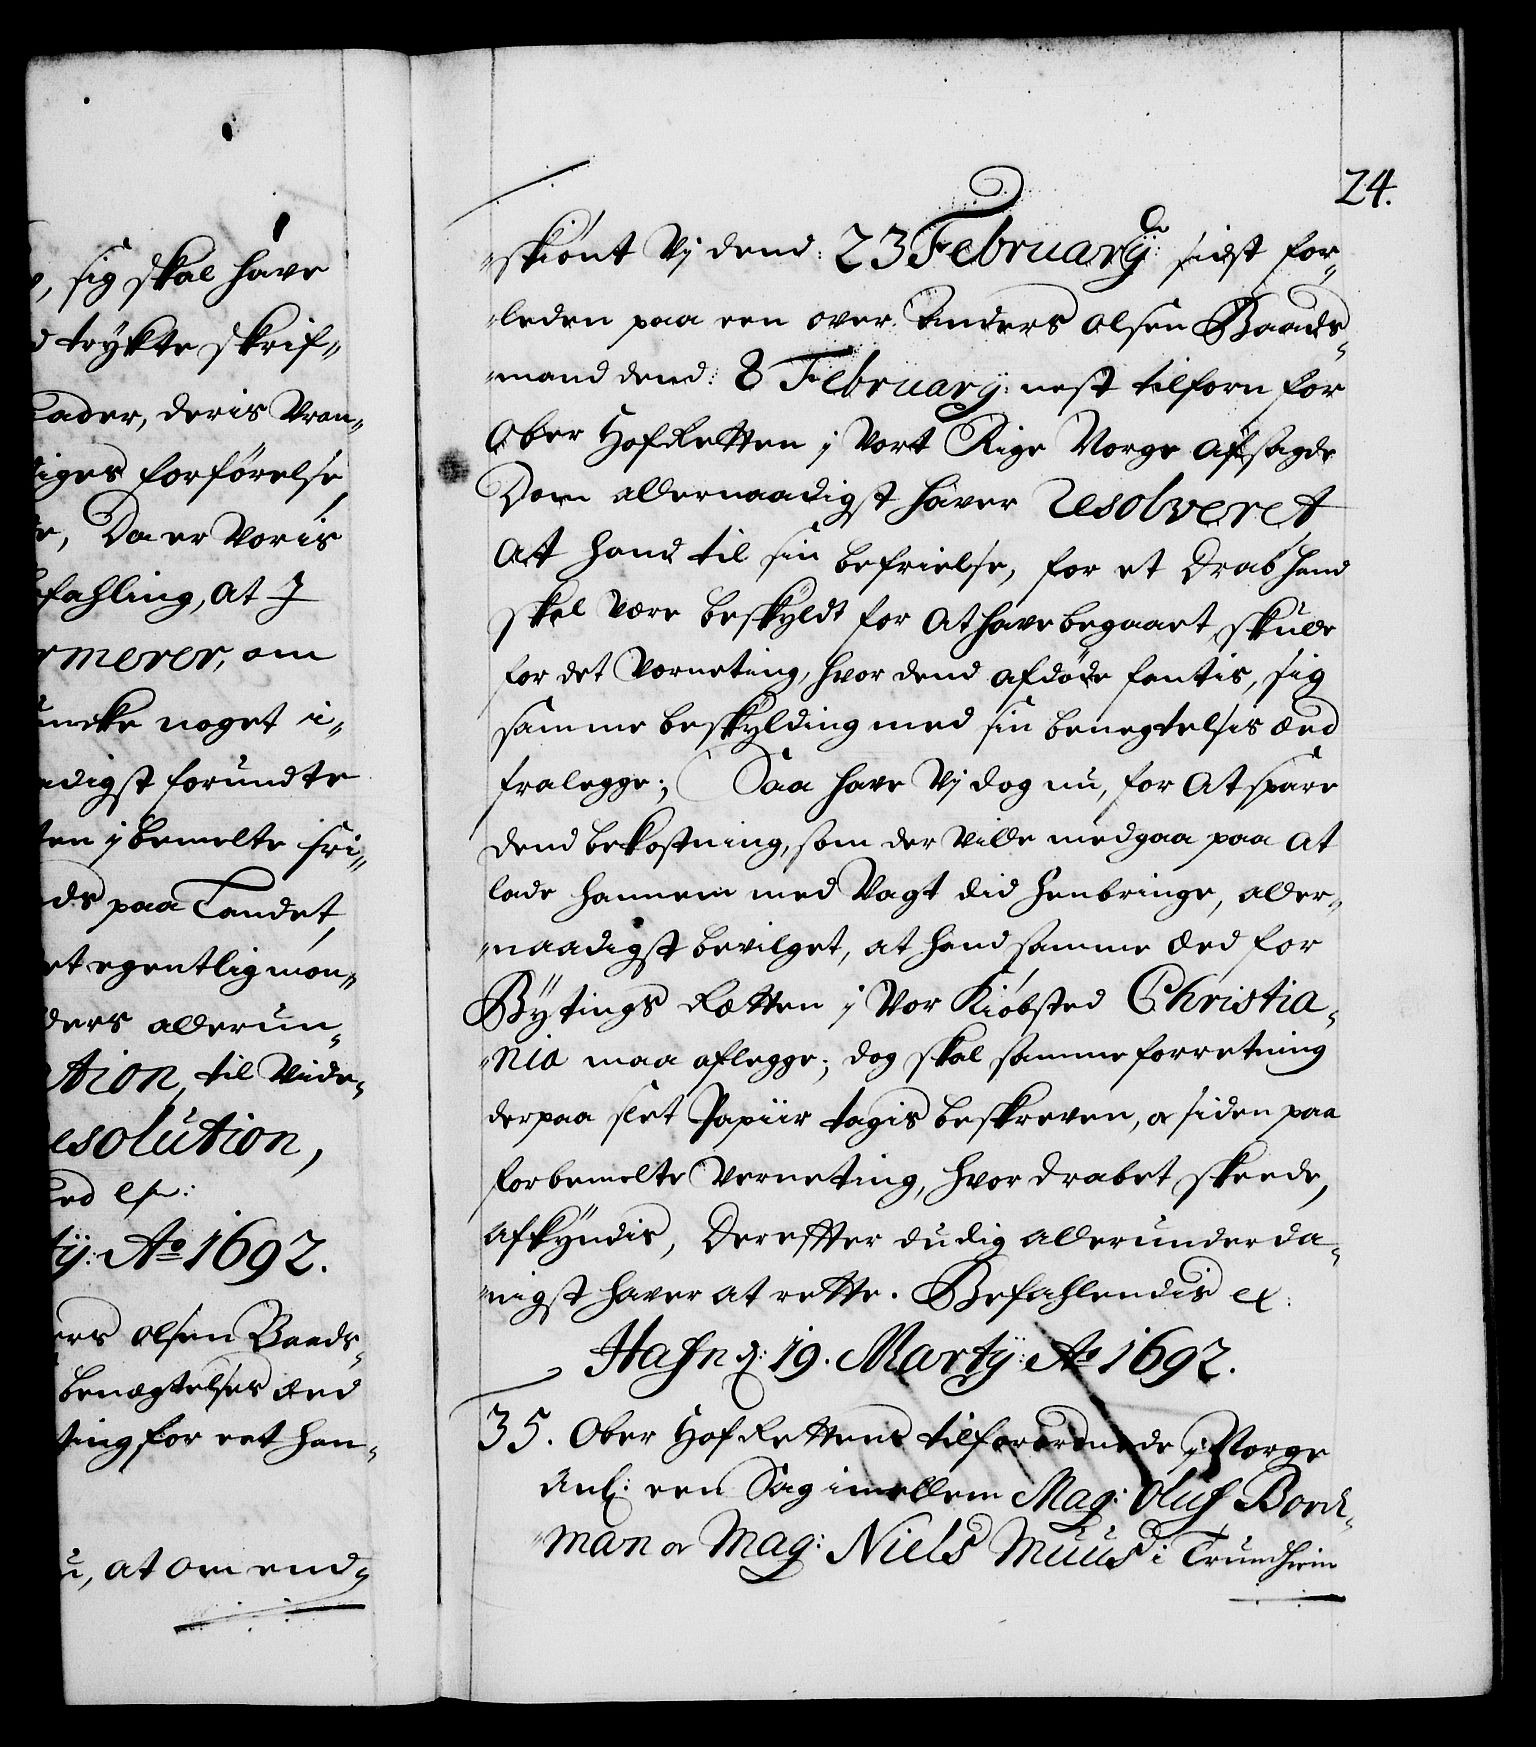 , sig skal have
trykte skrif„
Lader, deris Vran„
diges forførelse,
, Da er Voris
fahling, at I
rmerer, om
uncke noget i„
adigst forundte
ten i bemelte fri„
ds paa Landet,
et egentlig mon„
ders allerun„
ation, til Vide„
esolution,
ty: Ao 1692.
ers olsen Baads„
benægtelses Æed
ting for eet han„
u, at om end„
24.
„skiønt Vj dend: 23 February: sidst for„
„leden paa een over Anders olsen Baads„
„mand dend: 8 February: nest tilforn for
Ober Hof Retten j Vort Rige Norge afsagde
Dom allernaadigst haver Resolveret
Att hand til sin befrielse, for et Drab hand
skal være beskyldt for at have begaaet, skulle
for det Verneting, hvor dend afdøde fantis, sig
samme beskylding med sin benegtelsis Æed
fralegge; Saa have Vj dog nu, for at spare
dend bekostning, som der Ville medgaa paa at
lade hannem med Vagt did henbringe, aller„
„naadigst bevilget, at hand samme Æed for
Bytings Retten j Vor Kiøbsted Christia„
„nia maa aflegge; dog skal samme forretning
derpaa slet Papiir tagis beskreven, oc siden paa
forbemelte Verneting, hvor drabet skeede,
afkyndis, Derefter du dig allerunderda„
„nigst haver at rette. Befahlendis etc:
Hafn d: 19. Marty: Ao 1692.
35. Ober Hof Rettens tilforordnede j Norge
Anl: een Sag imellem Mag: Oluf Bord„
„man oc Mag: Niels Muus i Trundhiem